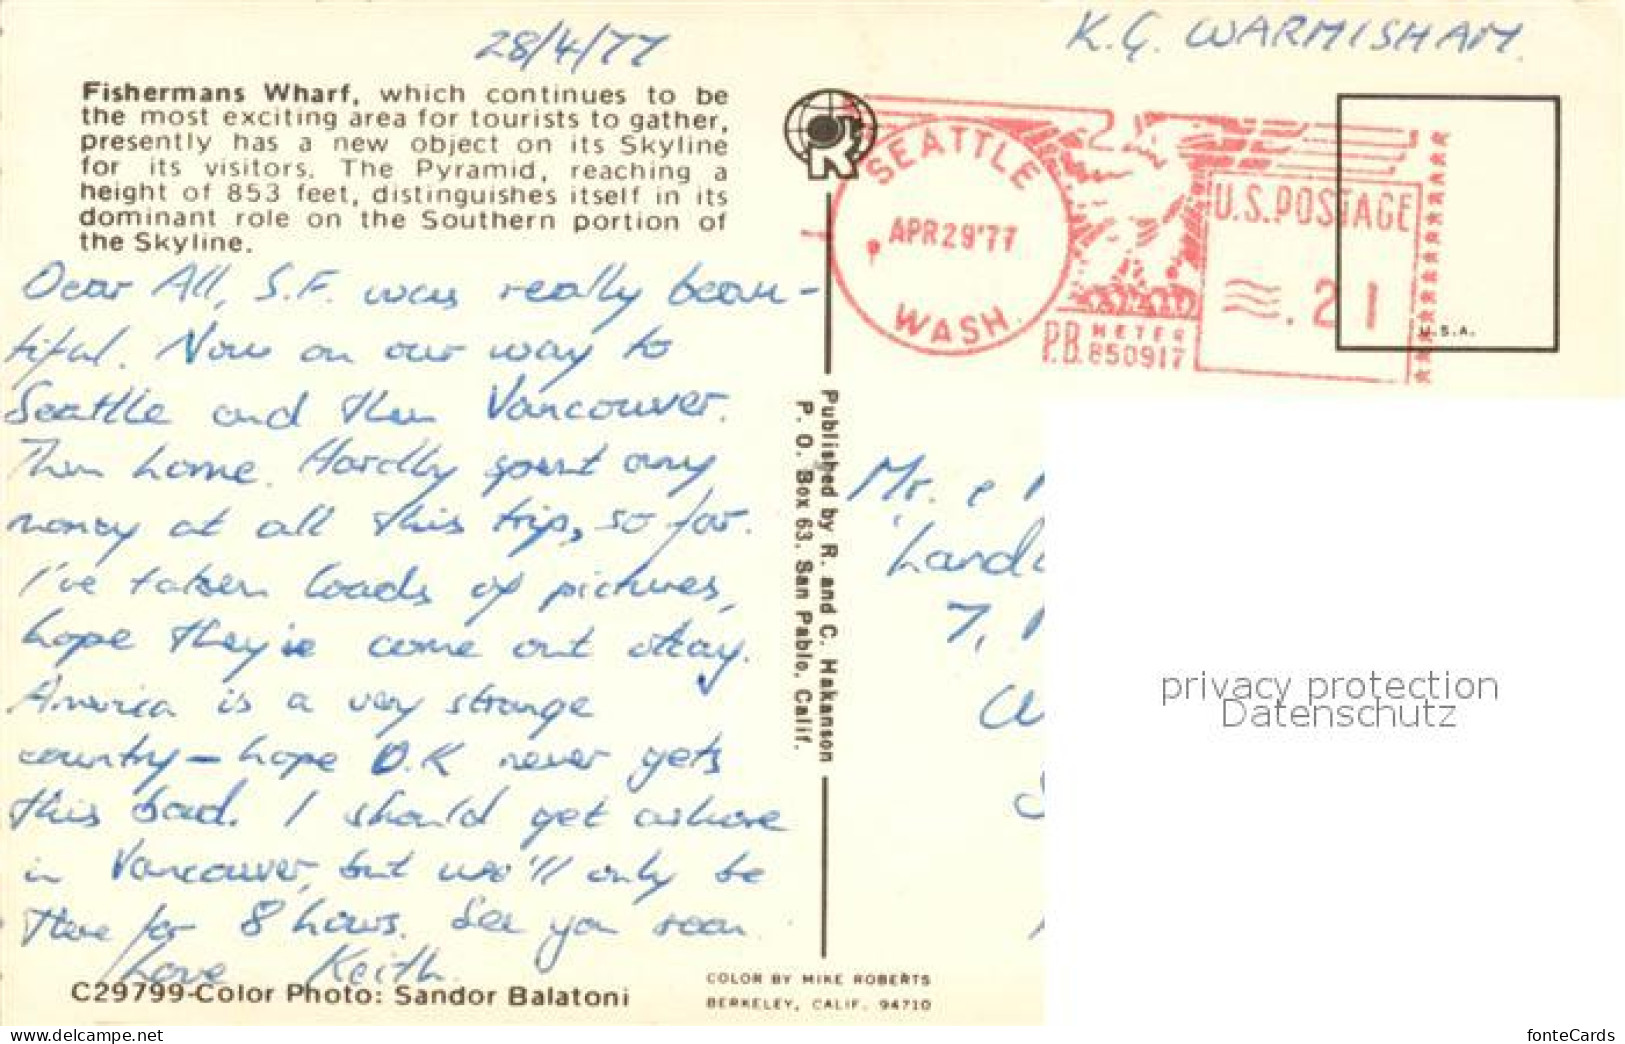 28/4/77
K. G. WARMISHAM
Fishermans Wharf, which continues to be
the most exciting area for tourists to gather,
presently has a new object on its Skyline
for its visitors. The Pyramid, reaching a
height of 853 feet, distinguishes itself in its
dominant role on the Southern portion of
the Skyline.
Dear All, S.F. was really beau-
tiful. Now on our way to
Seattle and then Vancouver.
Then home. Hardly spent any
money at all this trip, so far.
I've taken loads of pictures,
hope they're come out okay.
America is a very strange
country - hope O.K never gets
this bad. I should get ashore
in Vancouver, but we'll only be
there for 8 hours. See you soon
Love Keith.
C29799-Color Photo: Sandor Balatoni
SEATTLE
APR 29 '77
WASH
P.B. METER
850917
U.S. POSTAGE
.21
U.S.A.
Published by R. and C. Hakanson
P. O. Box 63, San Pablo, Calif.
Mr. &
7,
privacy protection
Datenschutz
COLOR BY MIKE ROBERTS
BERKELEY, CALIF. 94710
www.delcampe.net
fonteCards